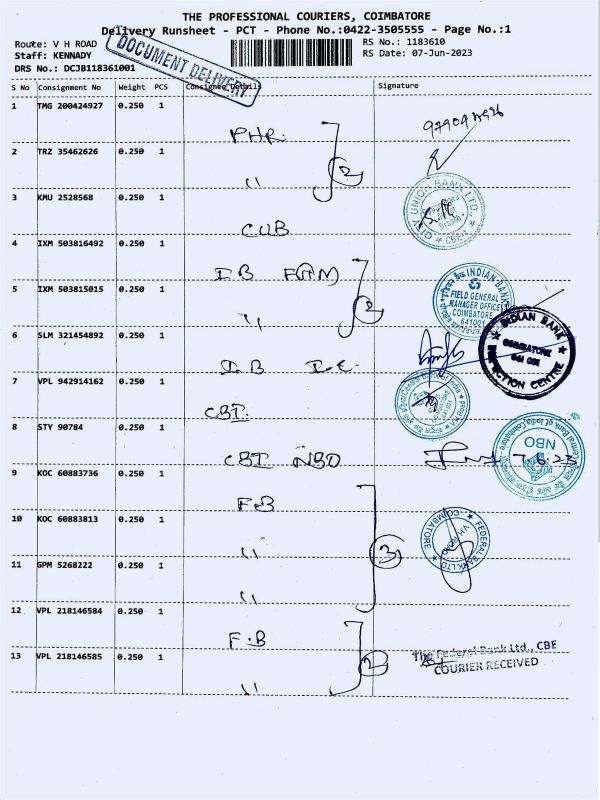 THE PROFESSIONAL COURIERS, COIMBATORE
Delivery Runsheet - PCT - Phone No.:0422-3505555 - Page No.:1
Route: V H ROAD
RS No.: 1183610
Staff: KENNADY
RS Date: 07-Jun-2023
DRS No.: DCJB118361001
DOCUMENT DELIVERY
S No Consignment No Weight PCS Consignee Details Signature
1 TMG 200424927 0.250 1
PHR.
2 TRZ 35462626 0.250 1
" 2
3 KMU 2528568 0.250 1
CUB
CITY UNION BANK LTD.
4 IXM 503816492 0.250 1
IB FGM
5 IXM 503815015 0.250 1
" 2
INDIAN BANK
FIELD GENERAL
MANAGER OFFICE
COIMBATORE
641001
6 SLM 321454892 0.250 1
I.B I.C.
INDIAN BANK
COIMBATORE
641 001
INSPECTION CENTRE
7 VPL 942914162 0.250 1
CBI.
Central Bank of India
8 STY 90784 0.250 1
CBI NBO
7.6.23
Central Bank of India, Coimbatore
NBO
9 KOC 60883736 0.250 1
F.B
10 KOC 60883813 0.250 1
" 3
FEDERAL BANK LTD
COIMBATORE
VH ROAD
11 GPM 5268222 0.250 1
"
12 VPL 218146584 0.250 1
F.B
13 VPL 218146585 0.250 1
" 2
The Federal Bank Ltd., CBE
COURIER RECEIVED